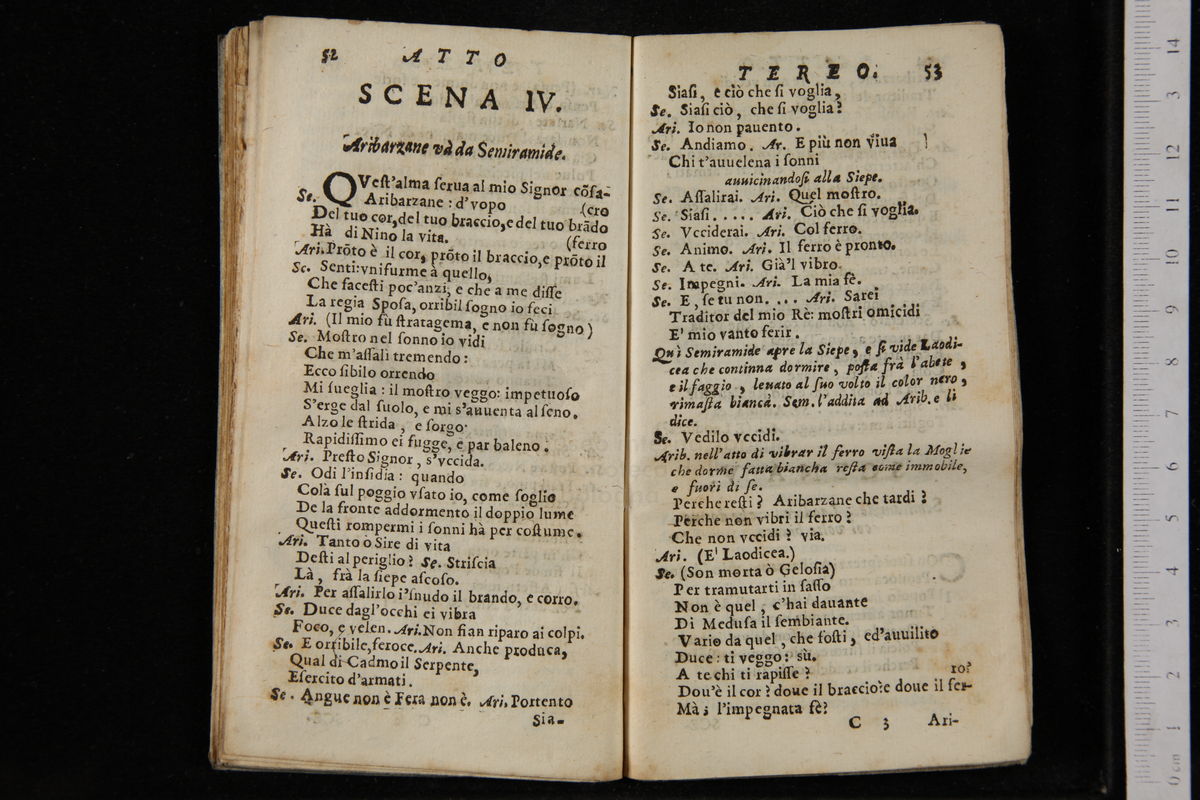 52 ATTO
SCENA IV.
Aribarzane và da Semiramide.
Se. QVeſt'alma ſerua al mio Signor cõſa-
Aribarzane : d'vopo (cro
Del tuo cor, del tuo braccio, e del tuo brãdo
Hà di Nino la vita. (ferro
Ari. Prõto è il cor, prõto il braccio, e prõto il
Se. Senti: vniſurme à quello,
Che faceſti poc'anzi, e che a me diſſe
La regia Spoſa, orribil ſogno io feci
Ari. (Il mio fù ſtratagema, e non fù ſogno)
Se. Moſtro nel ſonno io vidi
Che m'aſſalì tremendo :
Ecco ſibilo orrendo
Mi ſueglia : il moſtro veggo: impetuoſo
S'erge dal ſuolo, e mi s'auuenta al ſeno.
Alzo le ſtrida , e ſorgo
Rapidiſſimo ei fugge, e par baleno .
Ari. Preſto Signor , s'vccida.
Se. Odi l'inſidia : quando
Colà ſul poggio vſato io, come ſoglio
De la fronte addormento il doppio lume
Queſti rompermi i ſonni hà per coſtume.
Ari. Tanto ò Sire di vita
Deſti al periglio? Se. Striſcia
Là , frà la ſiepe aſcoſo.
Ari. Per aſſalirlo i'ſnudo il brando, e corro.
Se. Duce dagl'occhi ei vibra
Foco, e velen. Ari. Non fian riparo ai colpi.
Se. E orribile, feroce. Ari. Anche produca,
Qual di Cadmo il Serpente,
Eſercito d'armati.
Se. Angue non è Fera non è. Ari. Portento
Sia-
TERZO. 53
Siaſi , e ciò che ſi voglia,
Se. Siaſi ciò , che ſi voglia?
Ari. Io non pauento .
Se. Andiamo. Ar. E più non viua
Chi t'auuelena i ſonni
auuicinandoſi alla Siepe.
Se. Aſſalirai. Ari. Quel moſtro.
Se. Siaſi..... Ari. Ciò che ſi voglia.
Se. Vcciderai. Ari. Col ferro.
Se. Animo. Ari. Il ferro è pronto.
Se. A te. Ari. Già'l vibro.
Se. Impegni. Ari. La mia fè.
Se. E , ſe tu non.... Ari. Sarei
Traditor del mio Rè: moſtri omicidi
E' mio vanto ferir .
Quì Semiramide apre la Siepe, e ſi vide Laodi-
cea che continna dormire , poſta frà l'abete ,
e il faggio , leuato al ſuo volto il color nero ,
rimaſta bianca. Sem. l'addita ad Arib. e li
dice.
Se. Vedilo vccidi.
Arib. nell'atto di vibrar il ferro viſta la Moglie
che dorme fatta biancha reſta come immobile,
e fuori di ſe.
Perche reſti? Aribarzane che tardi?
Perche non vibri il ferro?
Che non vccidi ? via.
Ari. (E' Laodicea.)
Se. (Son morta ò Geloſia)
Per tramutarti in ſaſſo
Non è quel , c'hai dauante
Di Meduſa il ſembiante.
Vario da quel , che foſti , ed'auuilito
Duce : ti veggo : sù.
A te chi ti rapiſſe ? ro?
Dou'è il cor ? doue il braccio? e doue il fer-
Mà ; l'impegnata fè?
C 3 Ari-